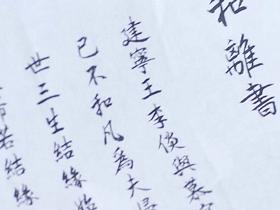 和離書
建寧王李倓與慕容
已不和凡為夫婦
世三生結緣始
若結緣